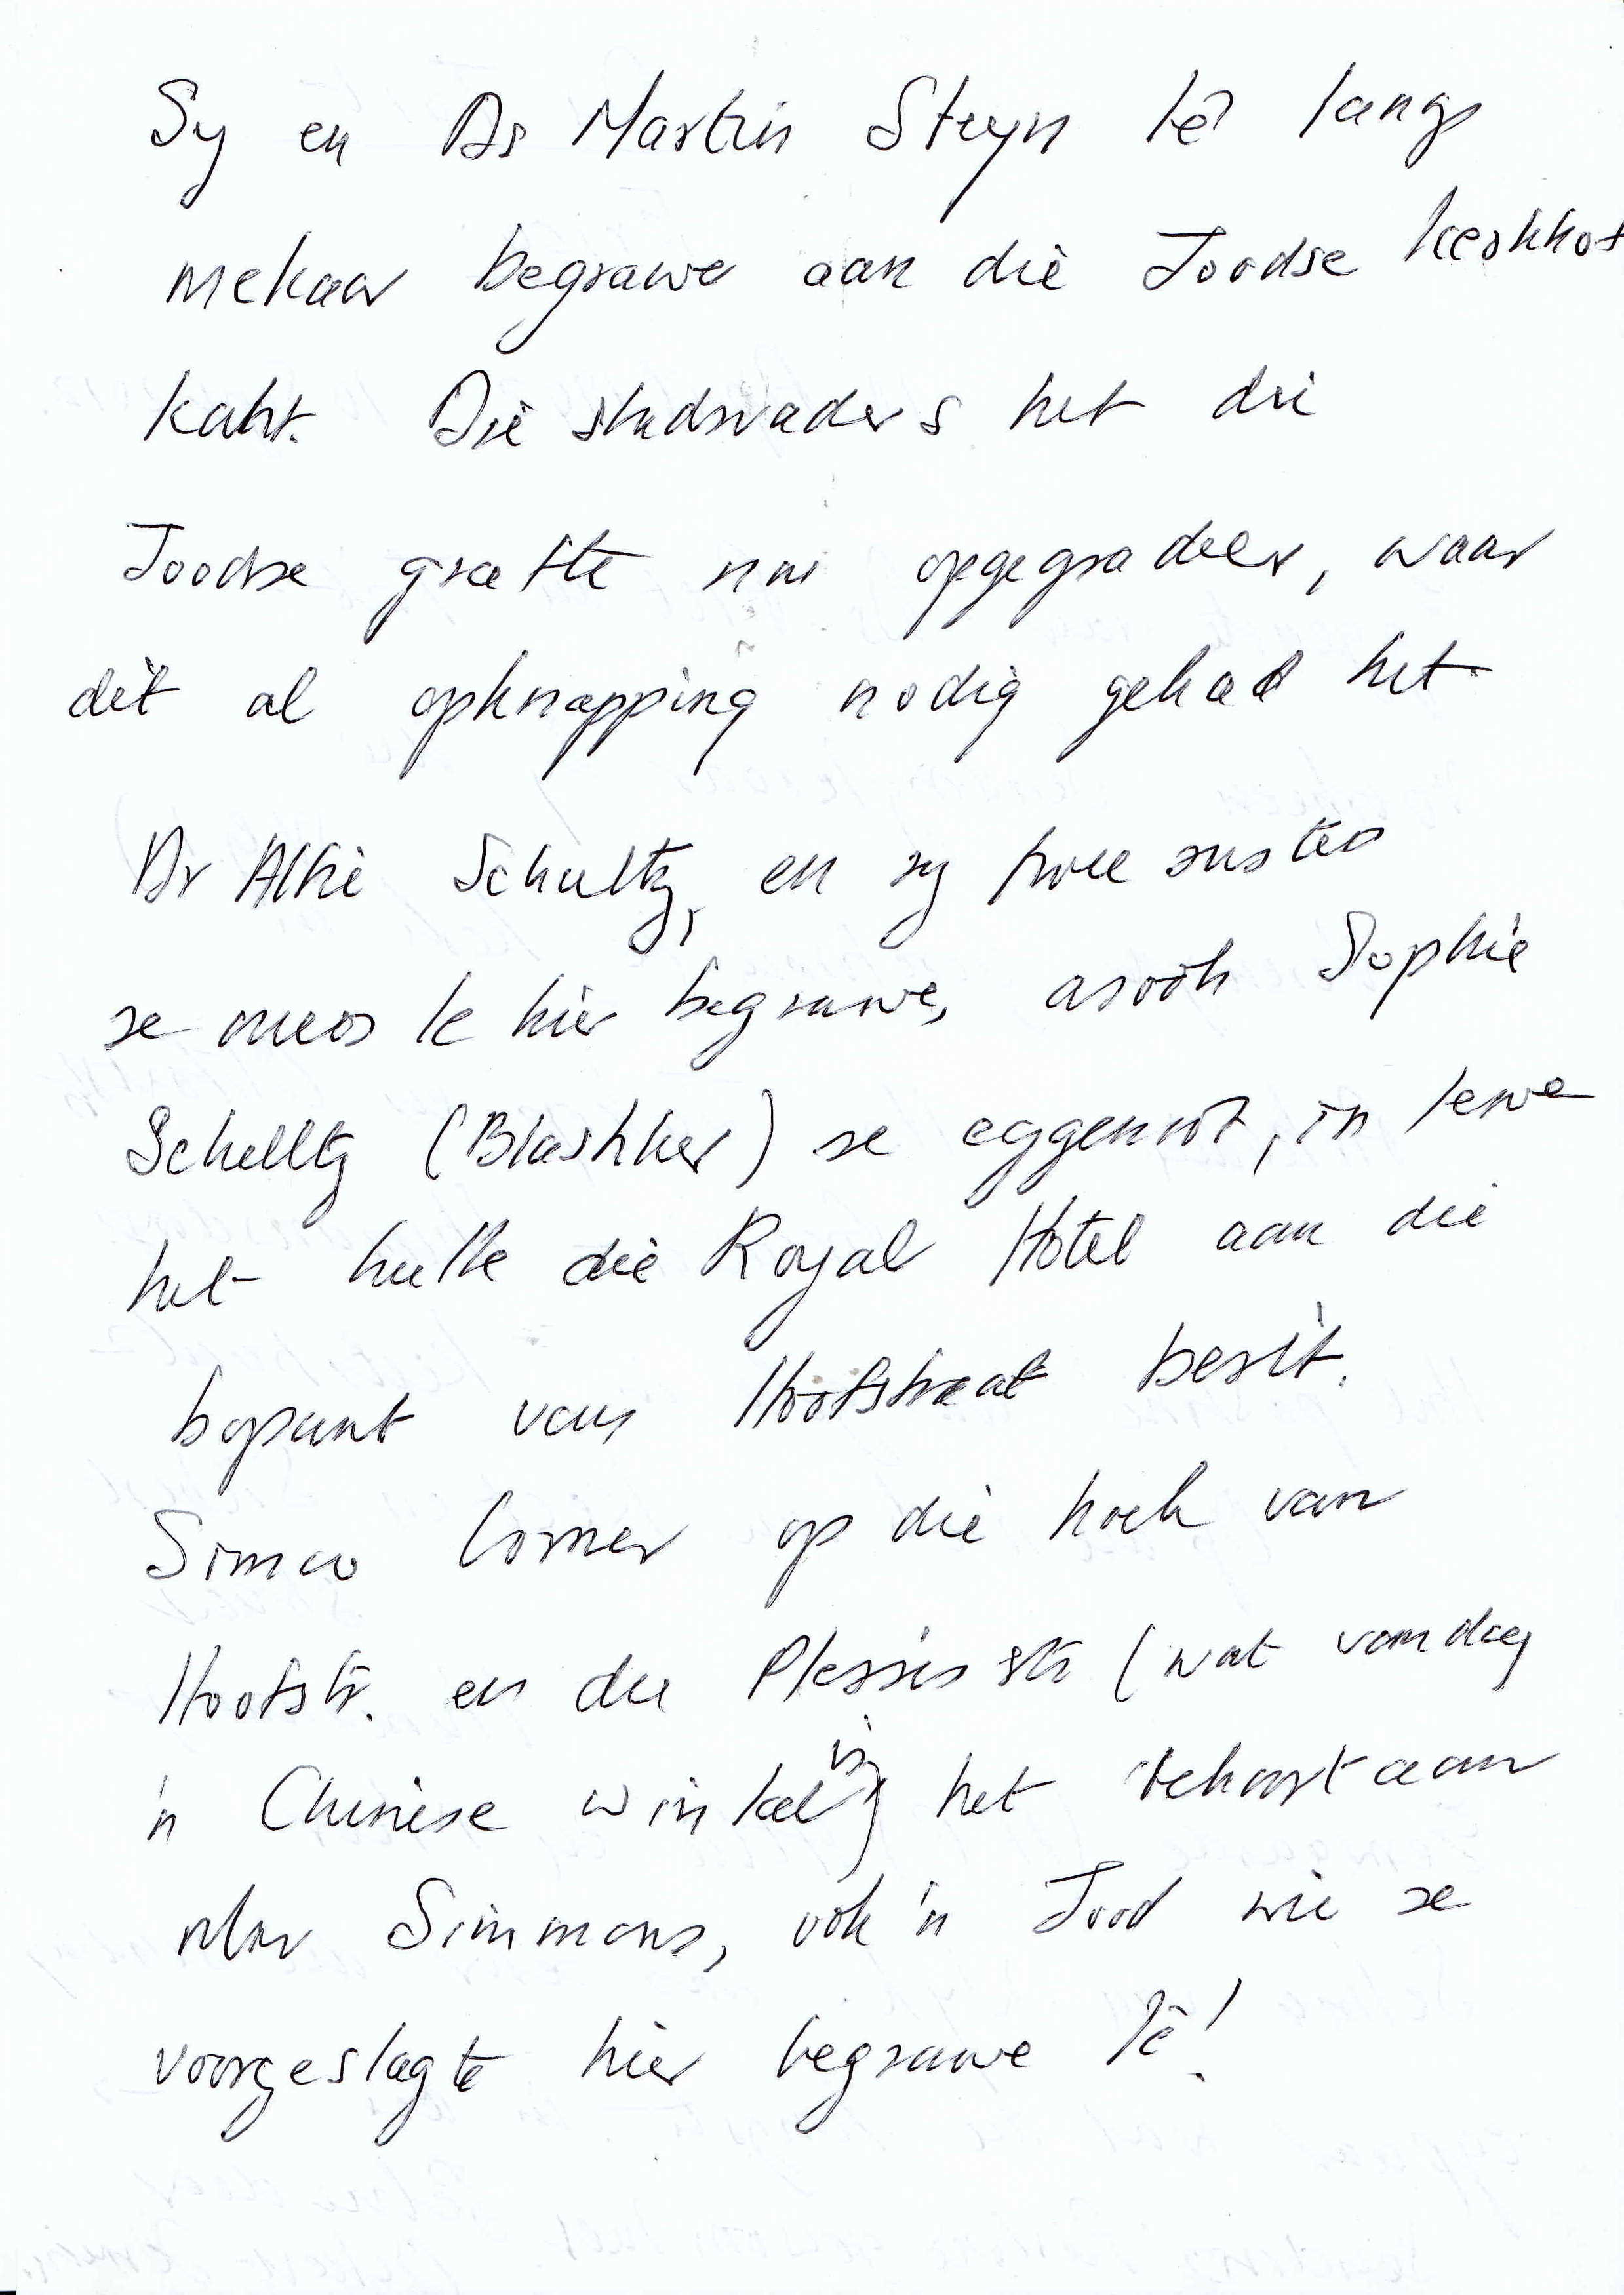 Sy en Ds Martin Steyn lê langs
mekaar begrawe aan die Joodse kerkhof
kant. Die stadsvaders het die
Joodse grafte nou opgegradeer, waar
dit al opknapping nodig gehad het
Dr Alkie Schultz, en sy twee susters
se ouers le hier begrawe, asook Sophie
Schultz (Blashker) se eggenoot, in lewe
het hulle die Royal Hotel aan die
bopunt van Hoofstraat besit.
Simco Corner op die hoek van
Hoofstr. en du Plessis str (wat vandag
'n Chinese winkel is) het behoort aan
Mnr Simmons, ook 'n Jood wie se
voorgeslagte hier begrawe lê!